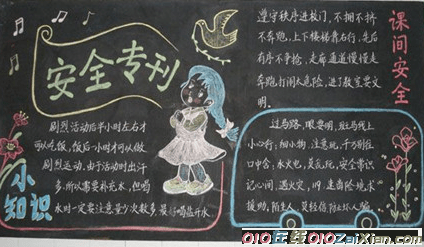 安全专刊
剧烈活动后半小时左右才
可以吃饭,饭后一小时才可以做
剧烈运动。由于活动时出汗
多,所以需要补充水,但喝
水时一定要注意量少次数多,最好喝盐开水
小
知识
遵守秩序进校门,不拥不挤
不奔跑,上下楼梯靠右行,先后
有序不争抢,走廊通道慢慢走
奔跑打闹太危险,进了教室要文
明。
课间安全
过马路,眼要明,斑马线上
小心行,细小物,注意玩,千万别往
口中含,水火电,莫乱玩,安全常识
记心间,遇火灾,119,走
援助,陌生人,莫轻信
010在线 010ZaiXian.com